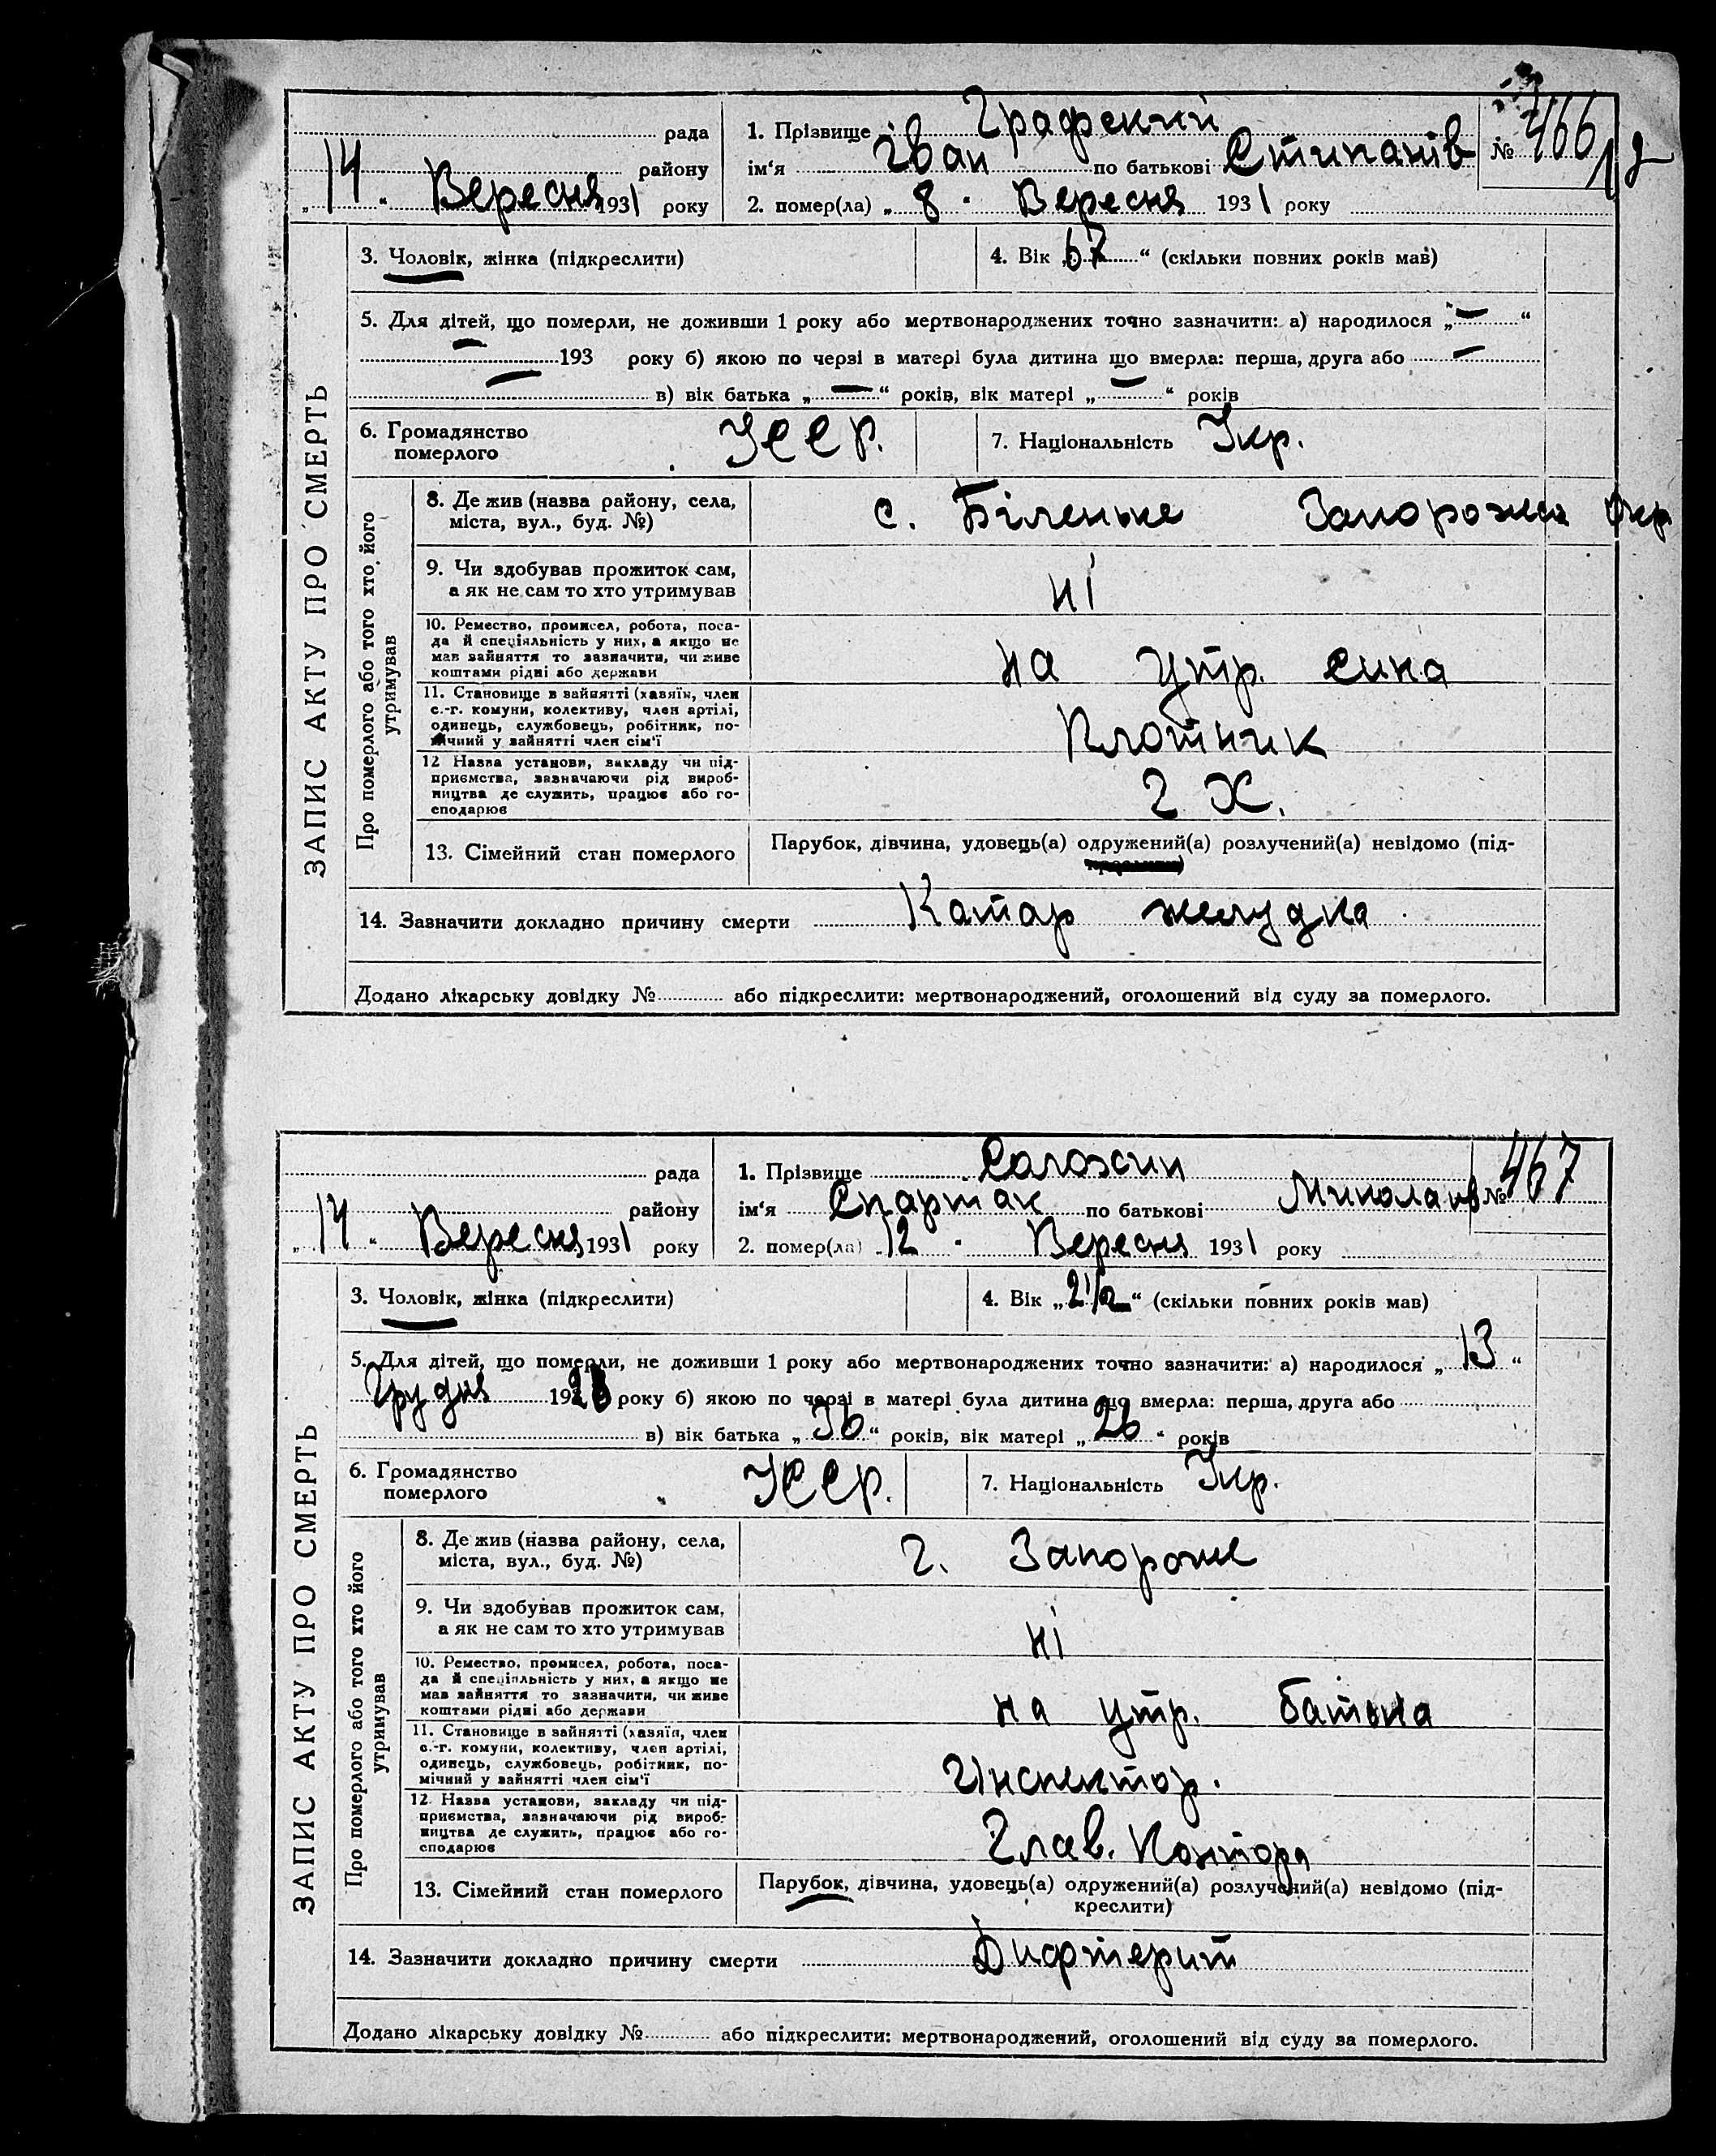 рада
1. Прізвище Графский
№ 466
району
ім'я Іван по батькові Стипанів
„ 14 “ Вересня 1931 року
2. помер(ла) „ 8 “ Вересня 1931 року
ЗАПИС АКТУ ПРО СМЕРТЬ
3. Чоловік, жінка (підкреслити)
4. Вік „ 67 “ (скільки повних років мав)
5. Для дітей, що померли, не доживши 1 року або мертвонароджених точно зазначити: а) народилося „ — “
— 193 року б) якою по черзі в матері була дитина що вмерла: перша, друга або —
— в) вік батька „ — “ років, вік матері „ — “ років
6. Громадянство
померлого
УССР.
7. Національність Укр.
Про померлого або того хто його
утримував
8. Де жив (назва району, села,
міста, вул., буд. №)
с. Біленьке Запорожск Окр
9. Чи здобував прожиток сам,
а як не сам то хто утримував
ні
10. Ремество, промисел, робота, поса-
да й спеціяльність у них, а якщо не
мав зайняття то зазначити, чи живе
коштами рідні або держави
на утр. сина
11. Становище в зайнятті (хазяїн, член
с.-г. комуни, колективу, член артілі,
одинець, службовець, робітник, по-
мічний у зайнятті член сім'ї
Плотник
12 Назва установи, закладу чи під-
приємства, зазначаючи рід вироб-
ництва де служить, працює або го-
сподарює
2 Х.
13. Сімейний стан померлого
Парубок, дівчина, удовець(а) одружений(а) розлучений(а) невідомо (під-
креслити)
14. Зазначити докладно причину смерти Катар желудка
Додано лікарську довідку № або підкреслити: мертвонароджений, оголошений від суду за померлого.
рада
1. Прізвище Саложин
№ 467
району
ім'я Спартак по батькові Миколаїв
„ 14 “ Вересня 1931 року
2. помер(ла) „ 12 “ Вересня 1931 року
ЗАПИС АКТУ ПРО СМЕРТЬ
3. Чоловік, жінка (підкреслити)
4. Вік „ 2 1/2 “ (скільки повних років мав)
5. Для дітей, що померли, не доживши 1 року або мертвонароджених точно зазначити: а) народилося „ 13 “
Грудня 1928 року б) якою по черзі в матері була дитина що вмерла: перша, друга або
в) вік батька „ 36 “ років, вік матері „ 26 “ років
6. Громадянство
померлого
УССР.
7. Національність Укр.
Про померлого або того хто його
утримував
8. Де жив (назва району, села,
міста, вул., буд. №)
г. Запороже
9. Чи здобував прожиток сам,
а як не сам то хто утримував
ні
10. Ремество, промисел, робота, поса-
да й спеціяльність у них, а якщо не
мав зайняття то зазначити, чи живе
коштами рідні або держави
на утр. батька
11. Становище в зайнятті (хазяїн, член
с.-г. комуни, колективу, член артілі,
одинець, службовець, робітник, по-
мічний у зайнятті член сім'ї
Інспектор.
12. Назва установи, закладу чи під-
приємства, зазначаючи рід вироб-
ництва де служить, працює або го-
сподарює
Глав. Контора
13. Сімейний стан померлого
Парубок, дівчина, удовець(а) одружений(а) розлучений(а) невідомо (під-
креслити)
14. Зазначити докладно причину смерти Дифтерит
Додано лікарську довідку № або підкреслити: мертвонароджений, оголошений від суду за померлого.